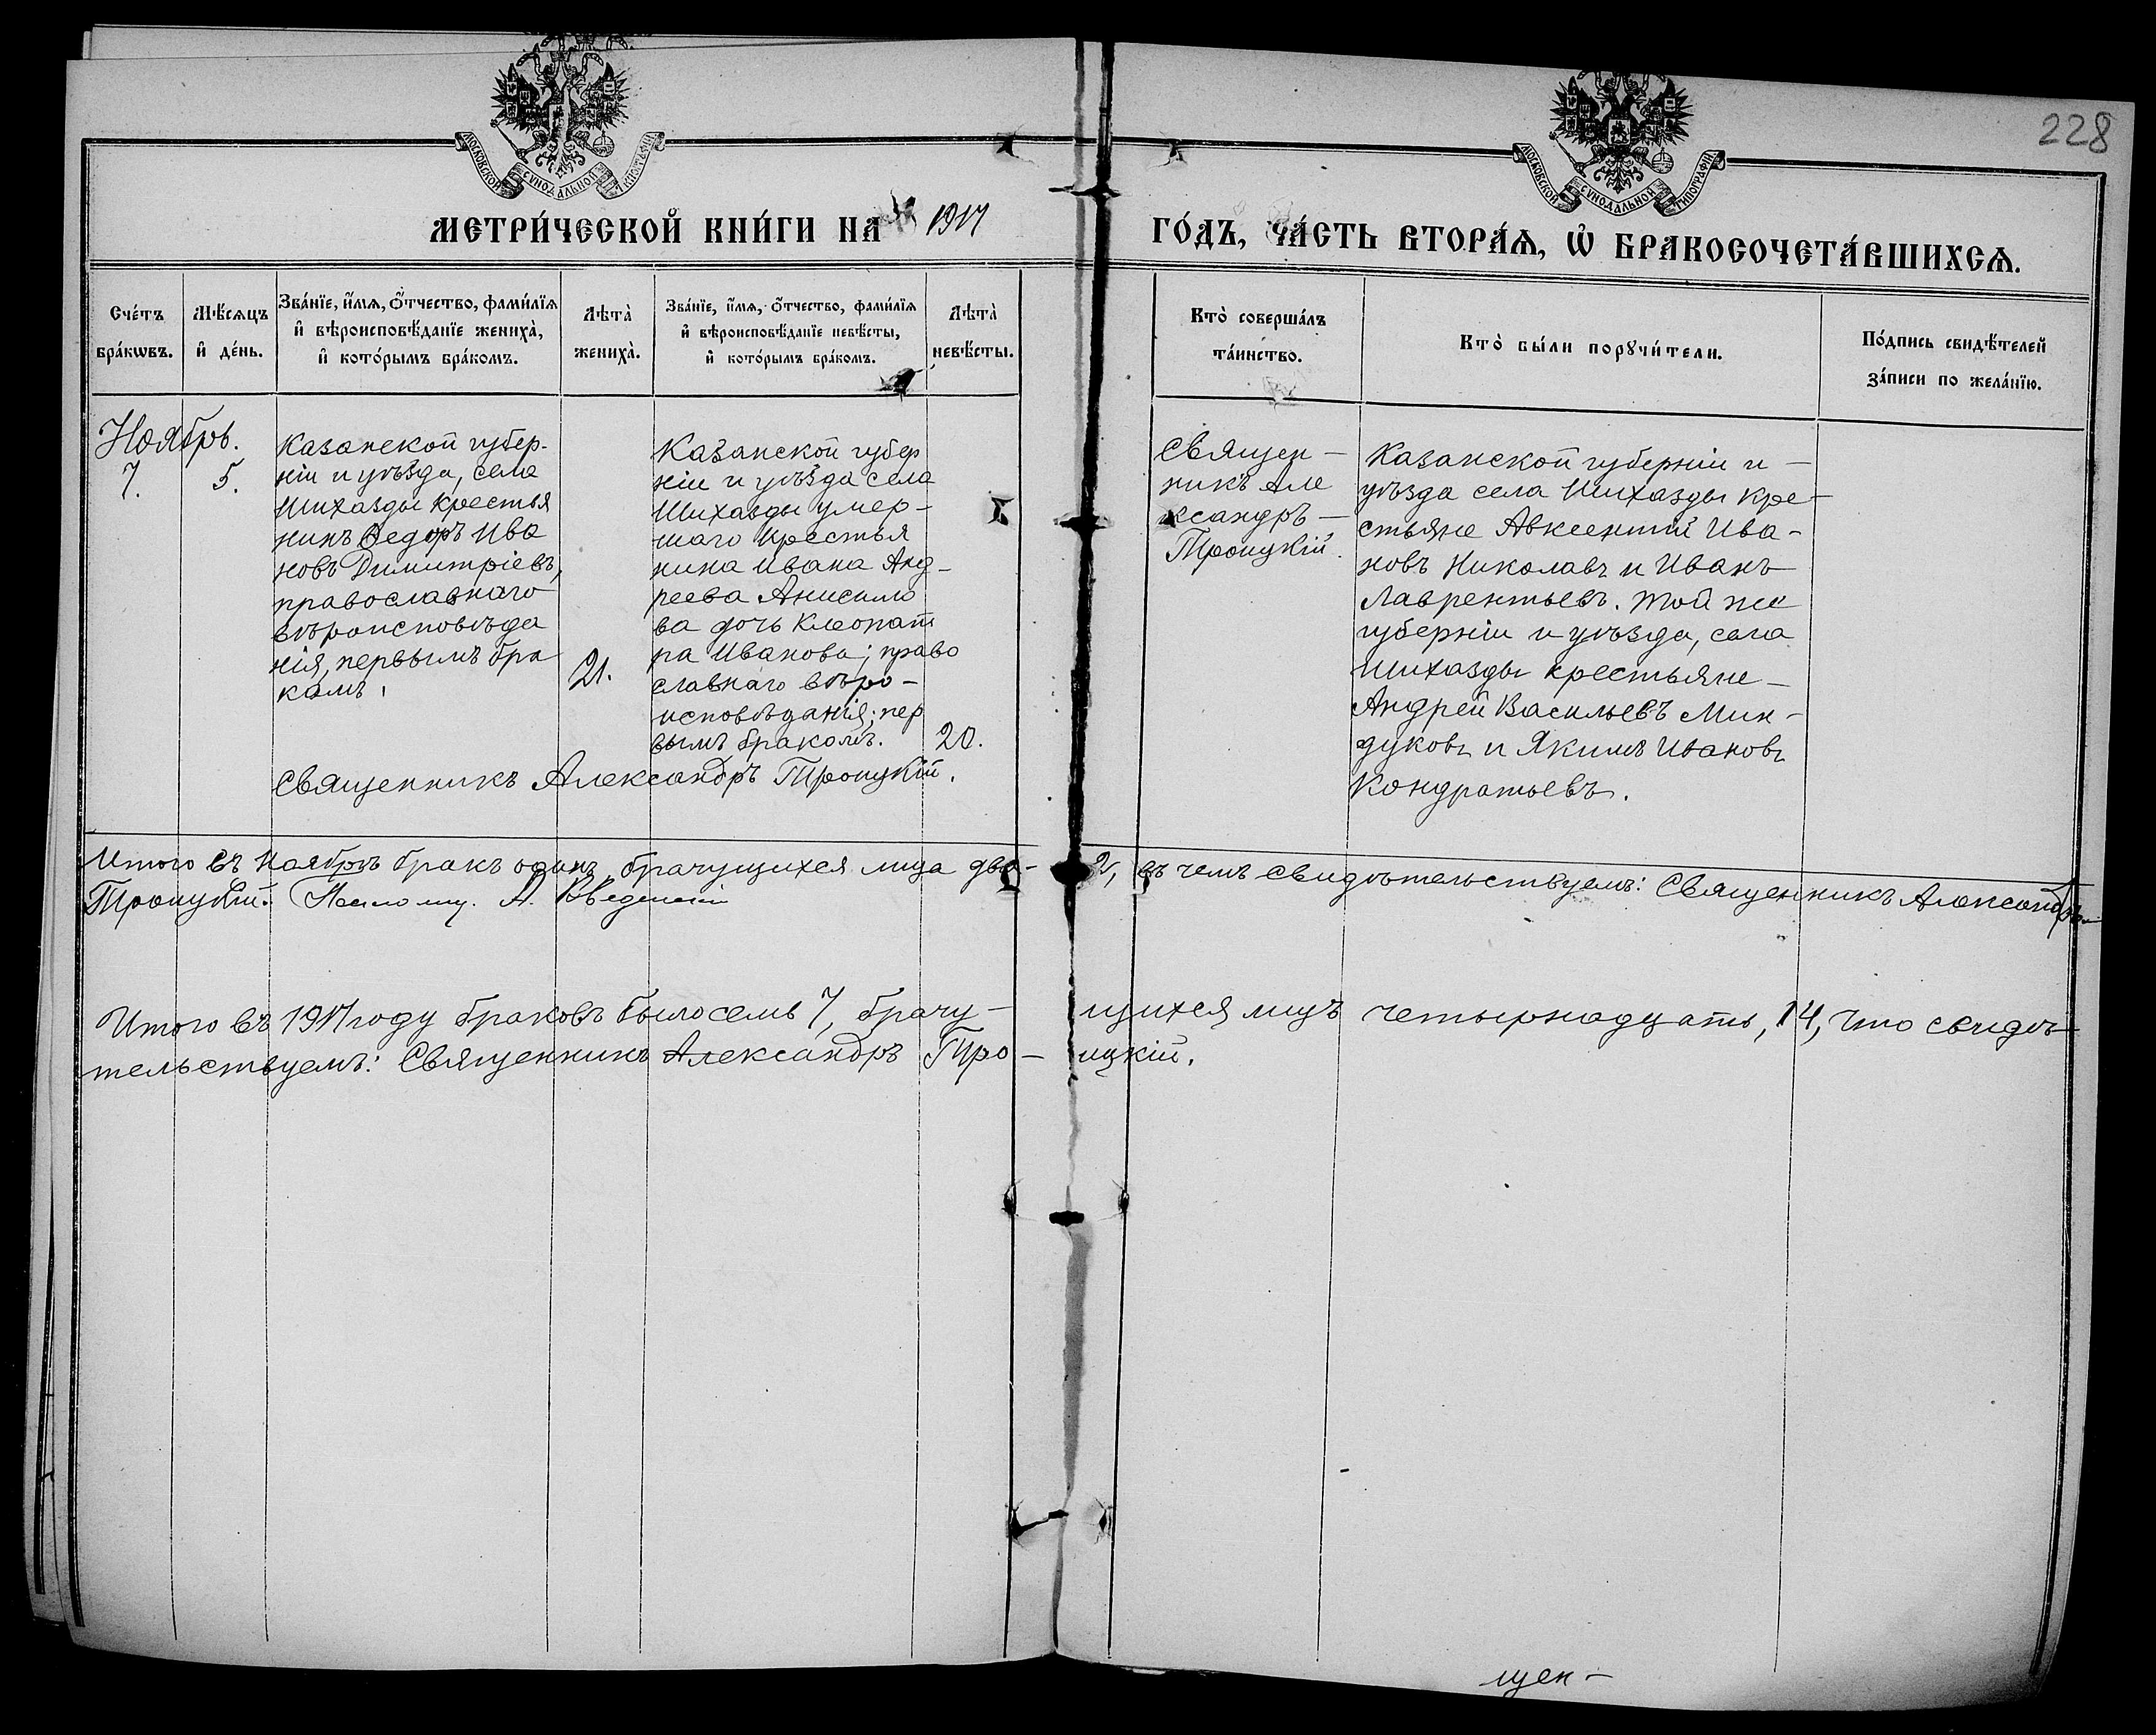 228
МОСКОВСКОЙ СѴНОДАЛЬНОЙ ТИПОГРАФІИ
МОСКОВСКОЙ СѴНОДАЛЬНОЙ ТИПОГРАФІИ
МЕТРИ́ЧЕСКОЙ КНИ́ГИ НА 1917
ГО́ДЪ, ЧА́СТЬ ВТОРА́Ѧ, Ѡ҆ БРАКОСОЧЕТА́ВШИХСѦ.
Сче́тъ
бра́кѡвъ.
Мѣ́сѧцъ
и҆ де́нь.
Зва́нїе, и҆́мѧ, ѻ҆́тчество, фами́лїѧ
и҆ вѣроисповѣ́данїе жениха̀,
и҆ кото́рымъ бра́комъ.
Лѣта̀
жениха̀.
Зва́нїе, и҆́мѧ, ѻ҆́тчество, фами́лїѧ
и҆ вѣроисповѣ́данїе невѣ́сты,
и҆ кото́рымъ бра́комъ.
Лѣта̀
невѣ́сты.
Кто̀ соверша́лъ
та́инство.
Кто̀ бы́ли порꙋчи́тели.
По́дпись свидѣ́телей
за́писи по жела́нїю.
Ноябрь.
7.
5.
Казанской губер-
ніи и уѣзда, села
Шихазды крестья
нинъ Ѳедоръ Ива
новъ Димитріевъ,
православнаго
вѣроисповѣда
нія, первымъ бра
камъ.
21.
Казанской губер
ніи и уѣзда села
Шихазды умер-
шаго крестья
нина Ивана Анд-
реева Анисимо
ва дочь Клеопат
ра Иванова; право
славнаго вѣро-
исповѣданія; пер
вымъ бракомъ.
20.
Священникъ Александръ Троицкій.
Священ-
никъ Але
ксандръ-
Троицкій.
Казанской губерніи и-
уѣзда села Шихазды кре-
стьяне Авксентій Ива-
новъ Николавъ и Иванъ
Лаврентьевъ. Той же
губерніи и уѣзда, села
Шихазды крестьяне-
Андрей Васильевъ Мин-
дуковъ и Якимъ Ивановъ
Кондратьевъ.
Итого въ Ноябрѣ бракъ одинъ, брачущихся лица два- 2, въ чемъ свидѣтельствуемъ: Священникъ Александръ-
Троицкій. А. Введенскій
Итого въ 1917 году браковъ было семь 7, брачу- щихся лицъ четырнадцать, 14, что свидѣ-
тельствуемъ: Священникъ Александръ Тро- ицкій.
щен-